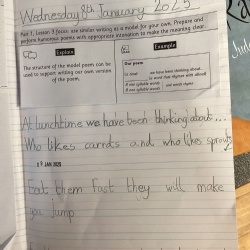 Wednesday 8th January 2025
Part 1, Lesson 3 focus: use similar writing as a model for your own. Prepare and
perform humorous poems with appropriate intonation to make the meaning clear.
Explain
The structure of the model poem can be
used to support writing our own version
of the poem.
Example
Our poem
we have been thinking about...
At lunchtime we have been thinking about...
Who likes carrots and who likes sprouts
09 JAN 2025
Eat them fast they will make
you Jump